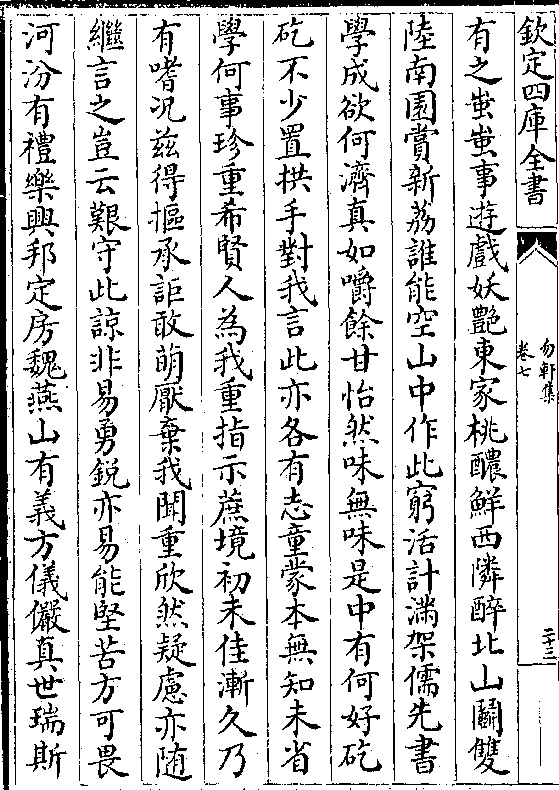 欽定四庫全書
勿軒集
卷七
二十三
有之蚩蚩事遊戲妖艷東家桃醲鮮西隣醉北山鬭雙
陸南園賞新荔誰能空山中作此窮活計滿架儒先書
學成欲何濟真如嚼餘甘怡然味無味是中有何好矻
矻不少置拱手對我言此亦各有志童蒙本無知未省
學何事珍重希賢人為我重指示蔗境初未佳漸久乃
有嗜况兹得摳承詎敢萌厭棄我聞重欣然疑慮亦随
繼言之豈云艱守此諒非易勇銳亦易能堅苦方可畏
河汾有禮樂興邦定房魏燕山有義方儀儼真世瑞斯